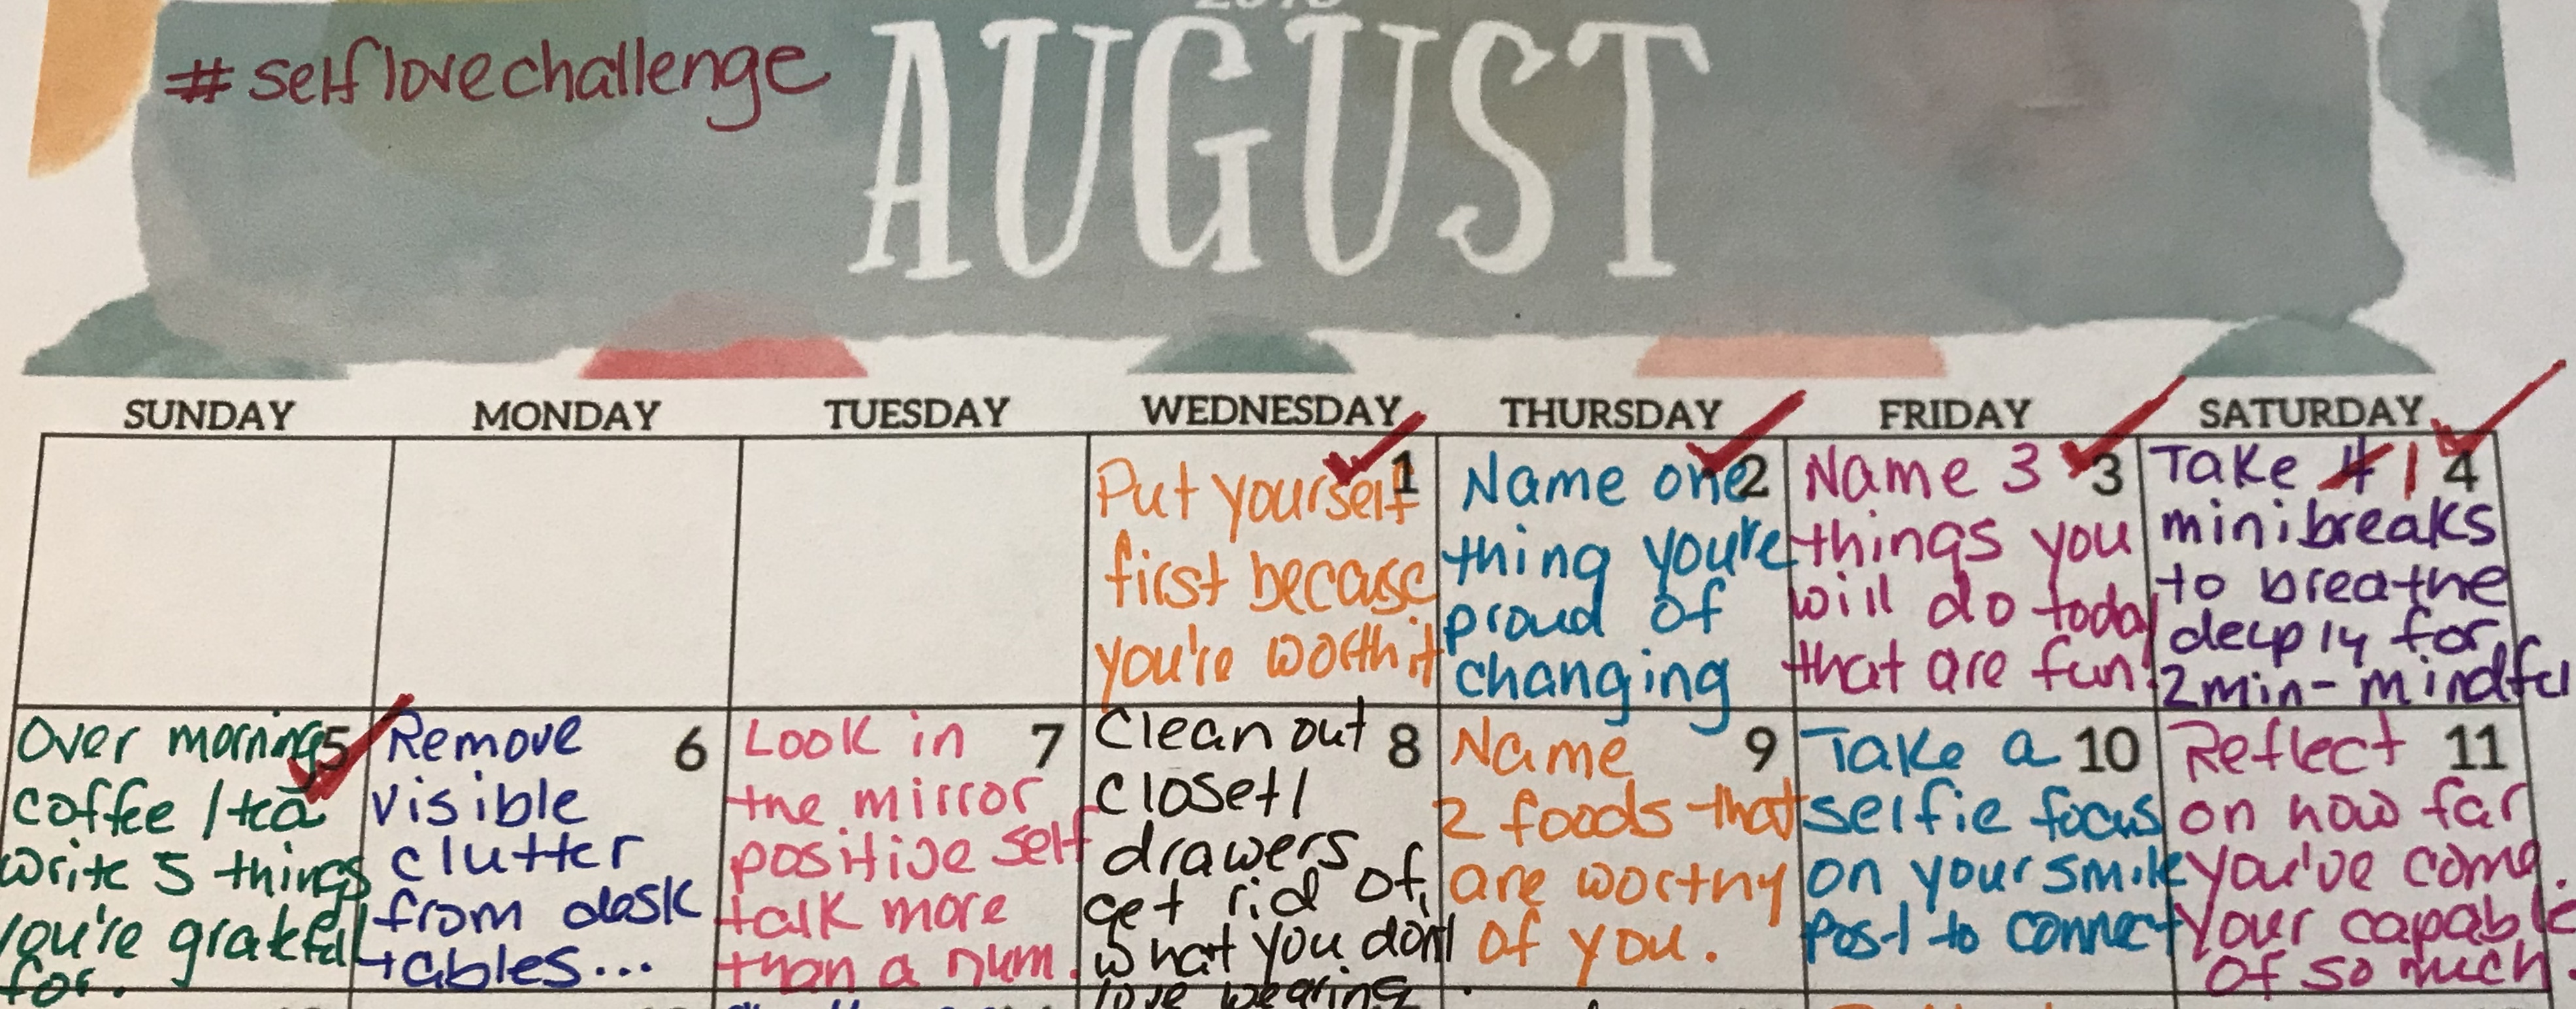 #selflovechallenge
AUGUST
SUNDAY MONDAY TUESDAY WEDNESDAY THURSDAY FRIDAY SATURDAY
1
Put yourself
first because
you're worth it
2
Name one
thing you're
proud of
changing
3
Name 3
things you
will do today
that are fun!
4
Take 4 1
minibreaks
to breathe
deeply for
2min- mindful
5
Over morning
coffee / tea
write 5 things
you're grateful
for.
6
Remove
visible
clutter
from desk
tables...
7
Look in
the mirror
positive self
talk more
than a num.
8
Clean out
closet/
drawers
get rid of
what you don't
love wearing
9
Name
2 foods that
are worthy
of you.
10
Take a
selfie focus
on your smile
Post to connect
11
Reflect
on how far
you've come.
Your capable
of so much.